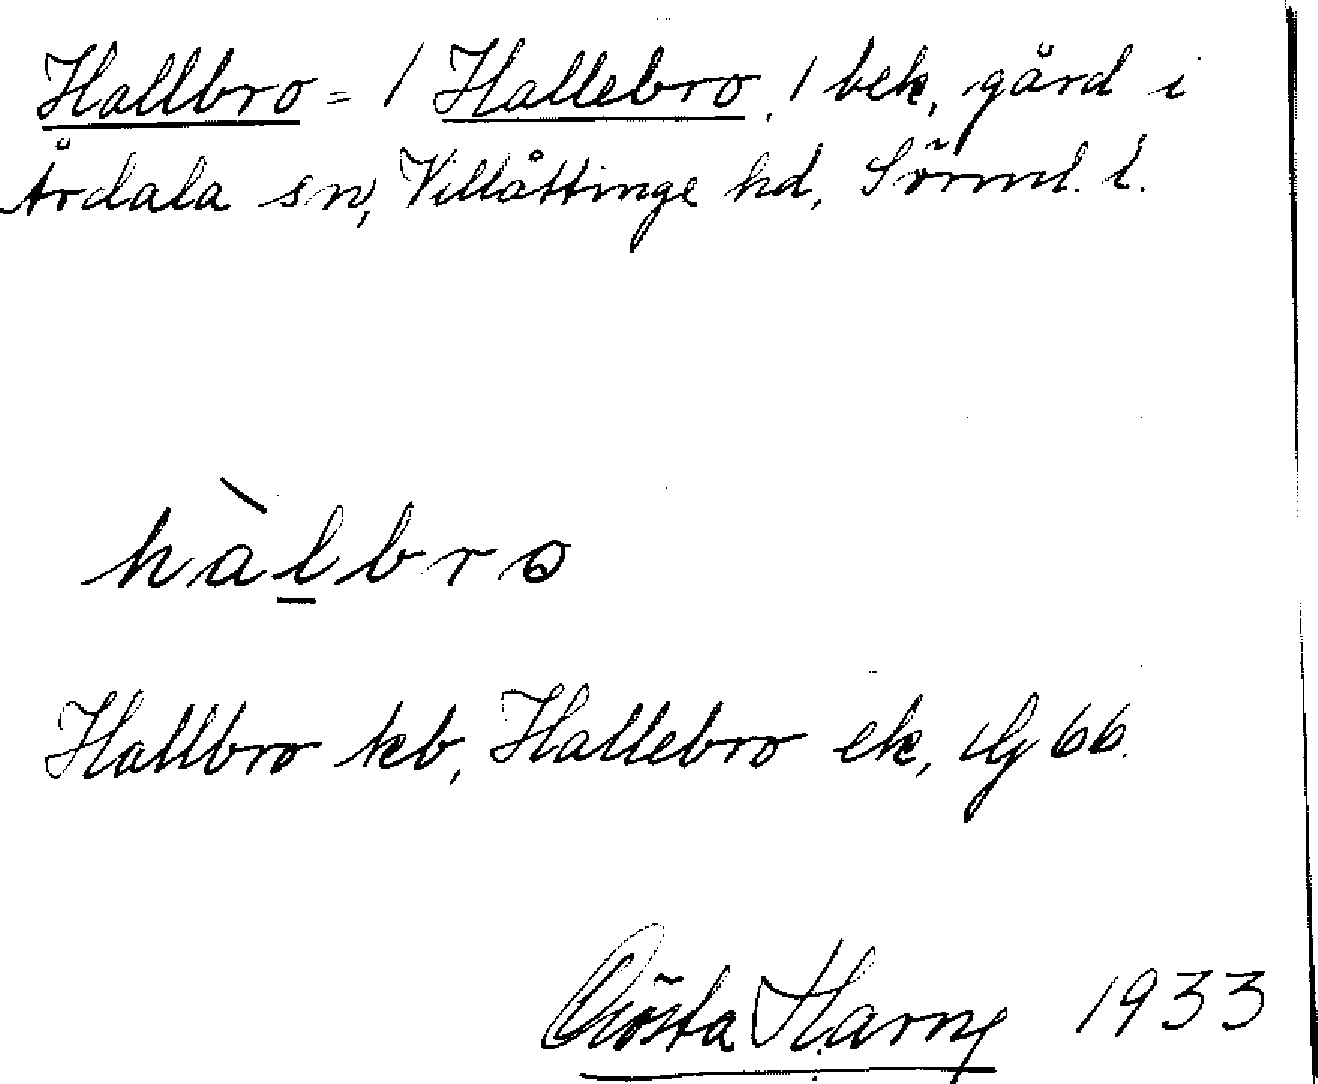 Hallbro = / Hallebro, / bek, gård i
Årdala sn, Villåttinge hd, Sörml. l.
hàlbro
Hallbro kb, Hallebro ek, Lg 66.
Gösta Harng 1933